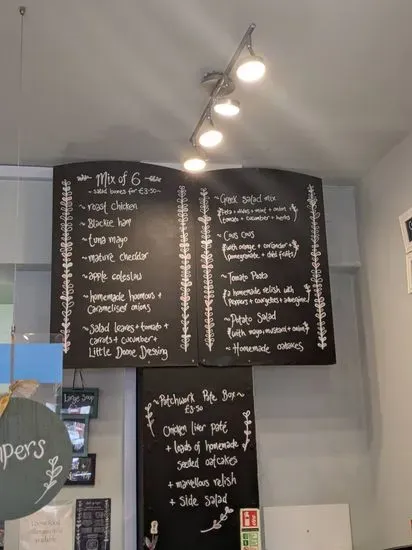 Mix of 6
~ salad boxes for £3.50 ~
~ roast chicken
~ Blackie ham
~ tuna mayo
~ mature cheddar
~ apple coleslaw
~ homemade houmous +
Caramelised onions
~ salad leaves + tomato +
carrots + cucumber +
Little Doone Dressing
~ Greek Salad mix
(feta + olives + mint + onion +
tomato + cucumber + herbs)
~ Cous Cous
(with orange + coriander +
pomegranate + dried fruits)
~ Tomato Pasta
(a homemade relish with
peppers + courgettes + aubergine)
~ Potato Salad
(with mayo, mustard + onion)
~ Homemade oatcakes
~ Patchwork Pate Box ~
£3.50
Chicken liver paté
+ loads of homemade
seeded oatcakes
+ marvellous relish
+ side salad
Large Soup
mpers